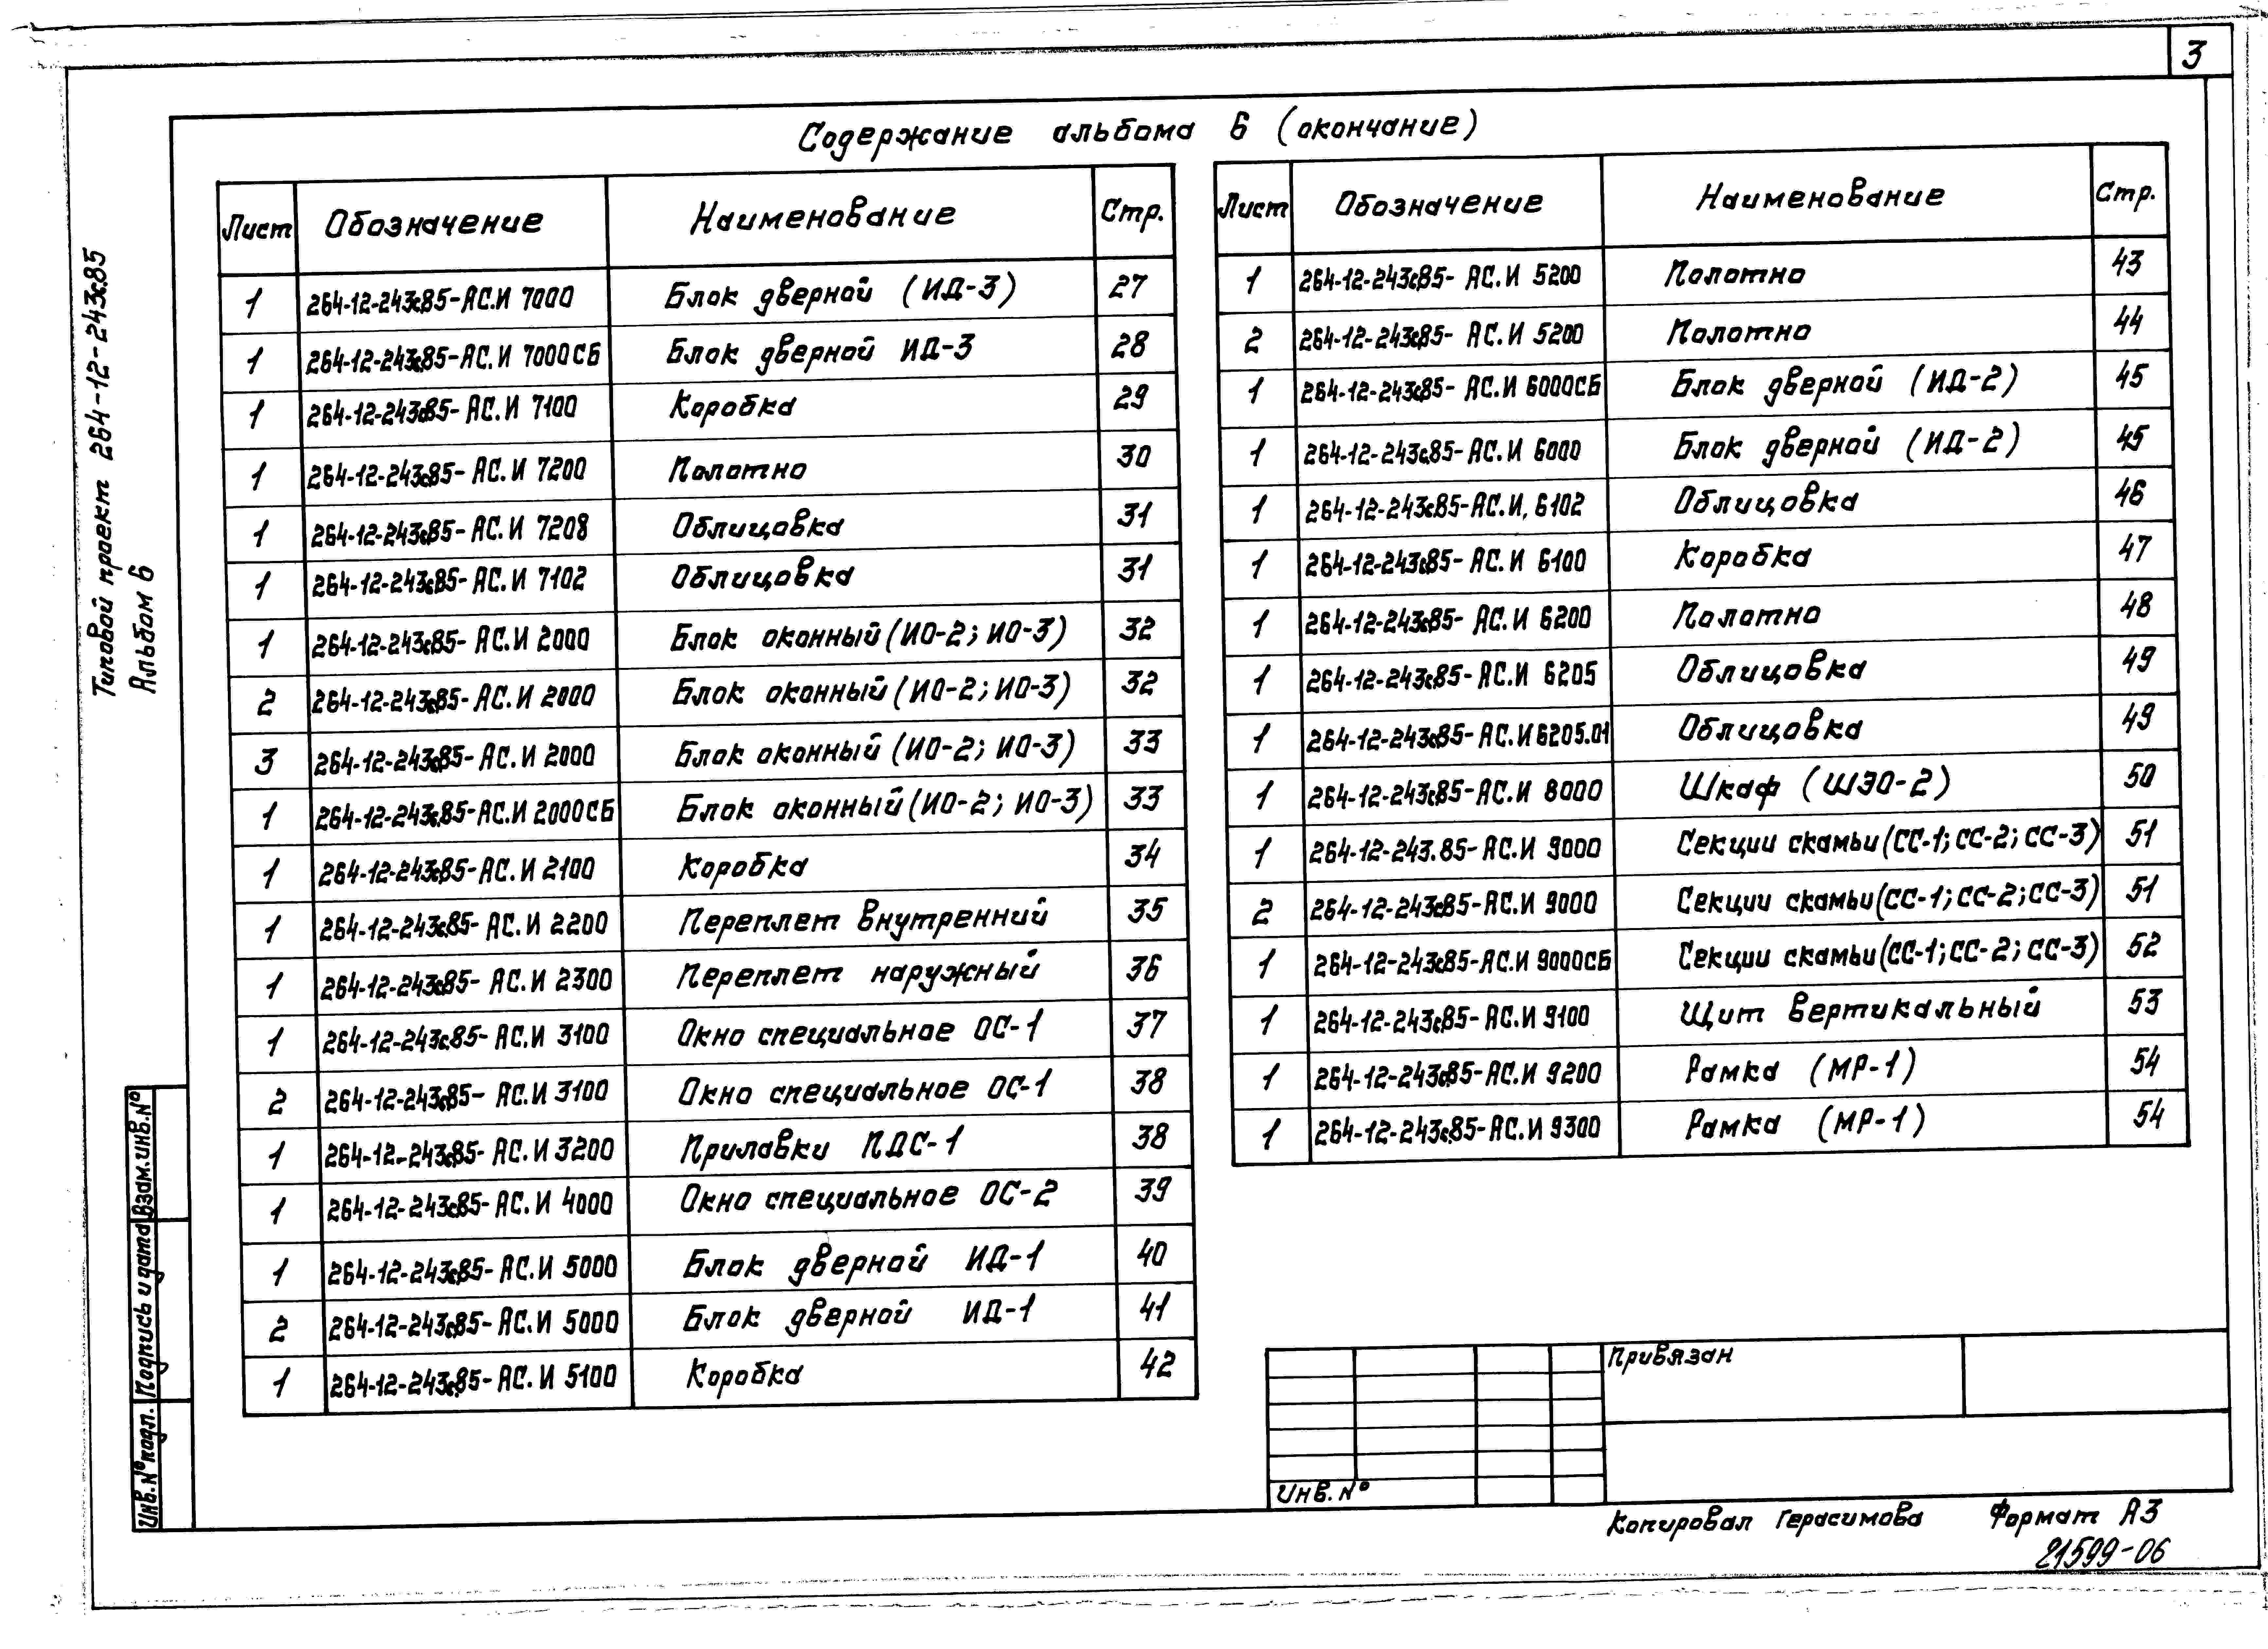 3
Содержание альбома 6 (окончание)
Типовой проект 264-12-243с.85
Альбом 6
Лист Обозначение Наименование Стр.
1 264-12-243с.85-АС.И 7000 Блок дверной (ИД-3) 27
1 264-12-243с.85-АС.И 7000СБ Блок дверной ИД-3 28
1 264-12-243с.85-АС.И 7100 Коробка 29
1 264-12-243с.85-АС.И 7200 Полотно 30
1 264-12-243с.85-АС.И 7208 Облицовка 31
1 264-12-243с.85-АС.И 7102 Облицовка 31
1 264-12-243с.85-АС.И 2000 Блок оконный (ИО-2; ИО-3) 32
2 264-12-243с.85-АС.И 2000 Блок оконный (ИО-2; ИО-3) 32
3 264-12-243с.85-АС.И 2000 Блок оконный (ИО-2; ИО-3) 33
1 264-12-243с.85-АС.И 2000СБ Блок оконный (ИО-2; ИО-3) 33
1 264-12-243с.85-АС.И 2100 Коробка 34
1 264-12-243с.85-АС.И 2200 Переплет внутренний 35
1 264-12-243с.85-АС.И 2300 Переплет наружный 36
1 264-12-243с.85-АС.И 3100 Окно специальное ОС-1 37
2 264-12-243с.85-АС.И 3100 Окно специальное ОС-1 38
1 264-12-243с.85-АС.И 3200 Прилавки ПДС-1 38
1 264-12-243с.85-АС.И 4000 Окно специальное ОС-2 39
1 264-12-243с.85-АС.И 5000 Блок дверной ИД-1 40
2 264-12-243с.85-АС.И 5000 Блок дверной ИД-1 41
1 264-12-243с.85-АС.И 5100 Коробка 42
Лист Обозначение Наименование Стр.
1 264-12-243с.85-АС.И 5200 Полотно 43
2 264-12-243с.85-АС.И 5200 Полотно 44
1 264-12-243с.85-АС.И 6000СБ Блок дверной (ИД-2) 45
1 264-12-243с.85-АС.И 6000 Блок дверной (ИД-2) 45
1 264-12-243с.85-АС.И, 6102 Облицовка 46
1 264-12-243с.85-АС.И 6100 Коробка 47
1 264-12-243с.85-АС.И 6200 Полотно 48
1 264-12-243с.85-АС.И 6205 Облицовка 49
1 264-12-243с.85-АС.И 6205.01 Облицовка 49
1 264-12-243с.85-АС.И 8000 Шкаф (ШЭО-2) 50
1 264-12-243.85-АС.И 9000 Секции скамьи (СС-1; СС-2; СС-3) 51
2 264-12-243с.85-АС.И 9000 Секции скамьи (СС-1; СС-2; СС-3) 51
1 264-12-243с.85-АС.И 9000СБ Секции скамьи (СС-1; СС-2; СС-3) 52
1 264-12-243с.85-АС.И 9100 Щит вертикальный 53
1 264-12-243с.85-АС.И 9200 Рамка (МР-1) 54
1 264-12-243с.85-АС.И 9300 Рамка (МР-1) 54
Взам.инв.№
Подпись и дата
Инв.№ подл.
Привязан
Инв.№
Копировал Герасимова Формат А3
21599-06